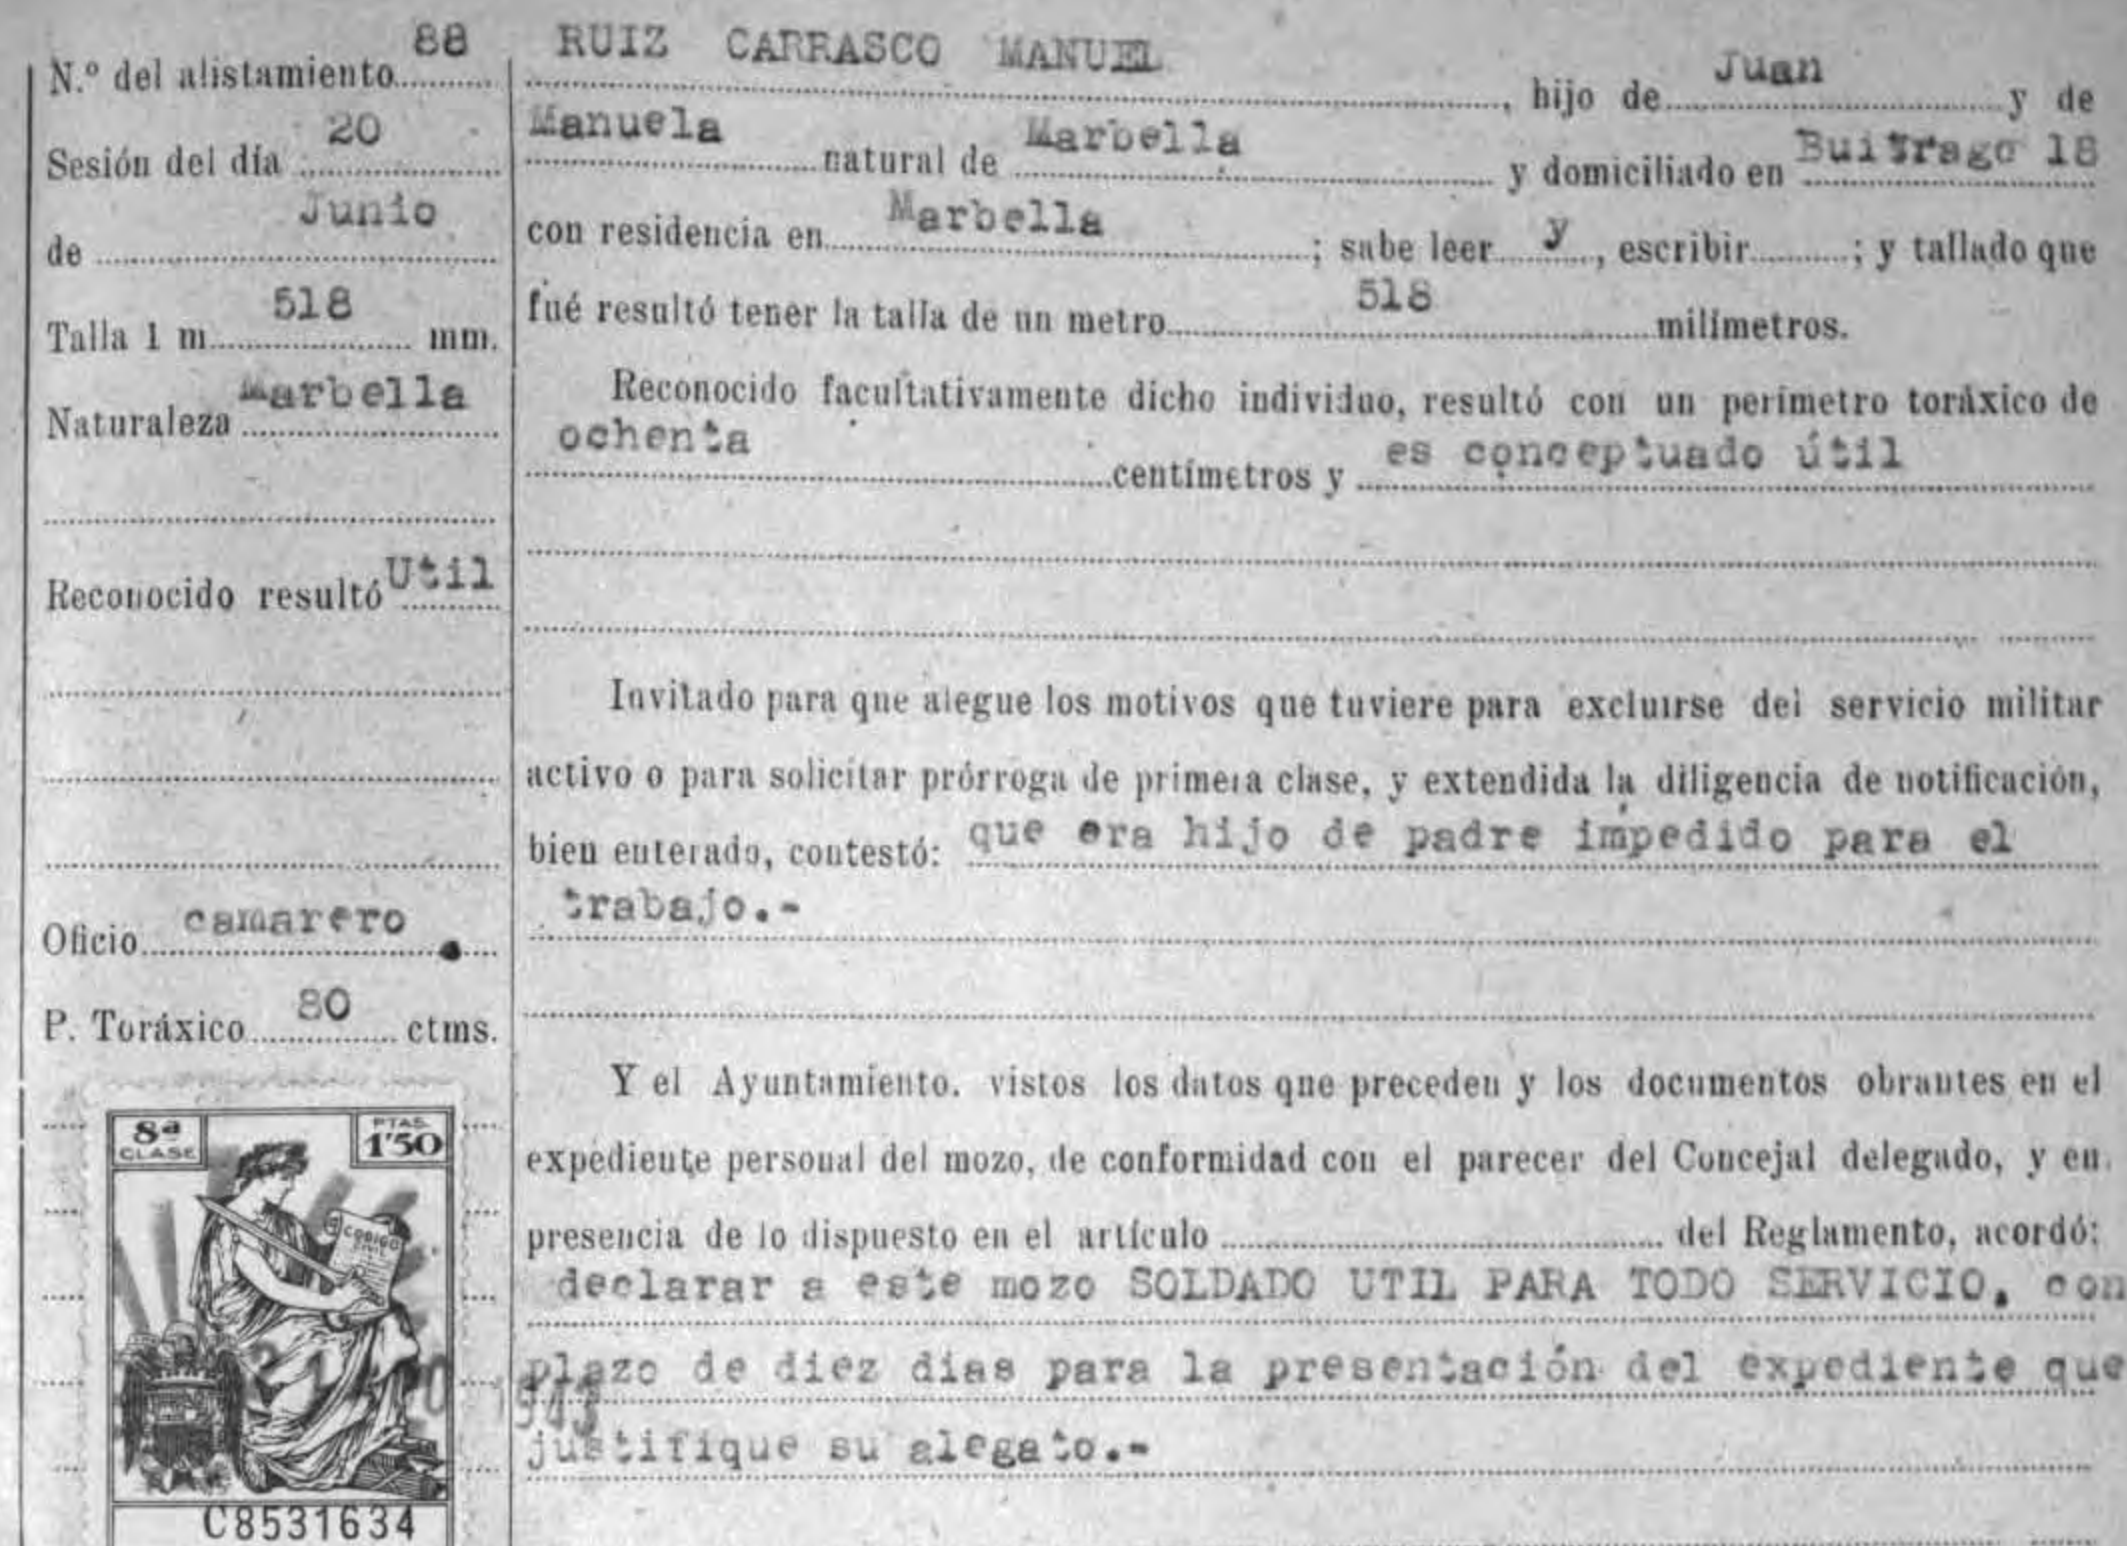 N.º del alistamiento 88
Sesión del día 20
de Junio
Talla 1 m. 518 mm.
Naturaleza Marbella
Reconocido resultó Util
Oficio camarero
P. Toráxico 80 ctms.
8ª CLASE
PTAS. 1'50
CODIGO
C8531634
1943
RUIZ CARRASCO MANUEL, hijo de Juan y de
Manuela natural de Marbella y domiciliado en Buitrago 18
con residencia en Marbella; sabe leer y, escribir; y tallado que
fué resultó tener la talla de un metro 518 milímetros.
Reconocido facultativamente dicho individuo, resultó con un perímetro toráxico de
ochenta centímetros y es conceptuado útil
Invitado para que alegue los motivos que tuviere para excluirse del servicio militar
activo o para solicitar prórroga de primera clase, y extendida la diligencia de notificación,
bien enterado, contestó: que era hijo de padre impedido para el
trabajo.-
Y el Ayuntamiento, vistos los datos que preceden y los documentos obrantes en el
expediente personal del mozo, de conformidad con el parecer del Concejal delegado, y en
presencia de lo dispuesto en el artículo del Reglamento, acordó:
declarar a este mozo SOLDADO UTIL PARA TODO SERVICIO, con
plazo de diez dias para la presentación del expediente que
justifique su alegato.-